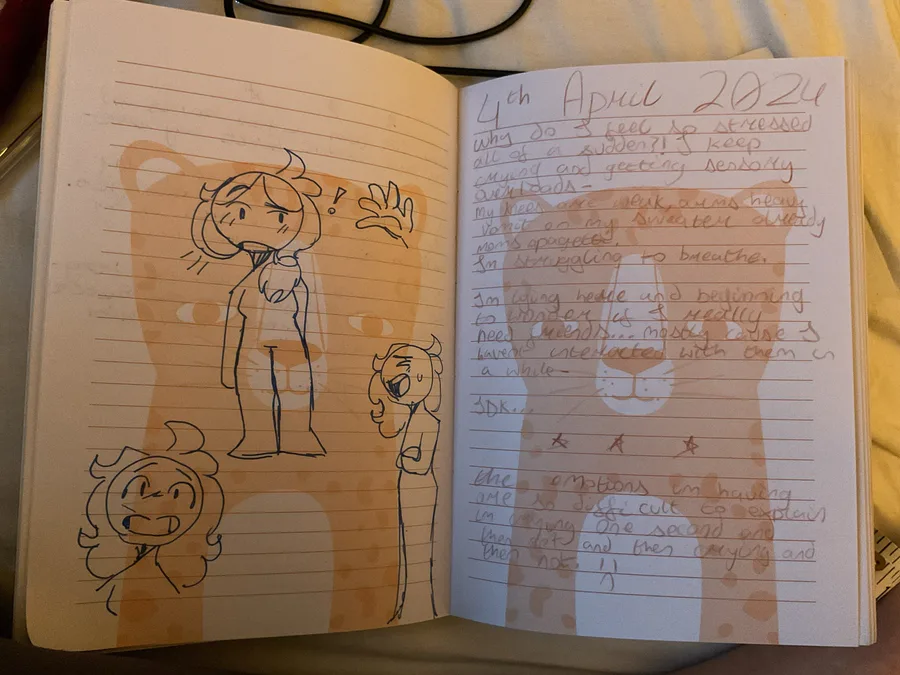 !
4th April 2024
Why do I feel so stressed
all of a sudden?! I keep
crying and getting sensory
overloads-
My knees are weak, arms heavy
Vomit on my sweater already
moms spagetti.
I'm struggling to breathe.
I'm lying here and beginning
to wonder if I really
need friends... mostly cause I
haven't interacted with them in
a while-
IDK...
the emotions im having
are so difficult to explain
im crying one second and
then not, and then crying and
then not. !!